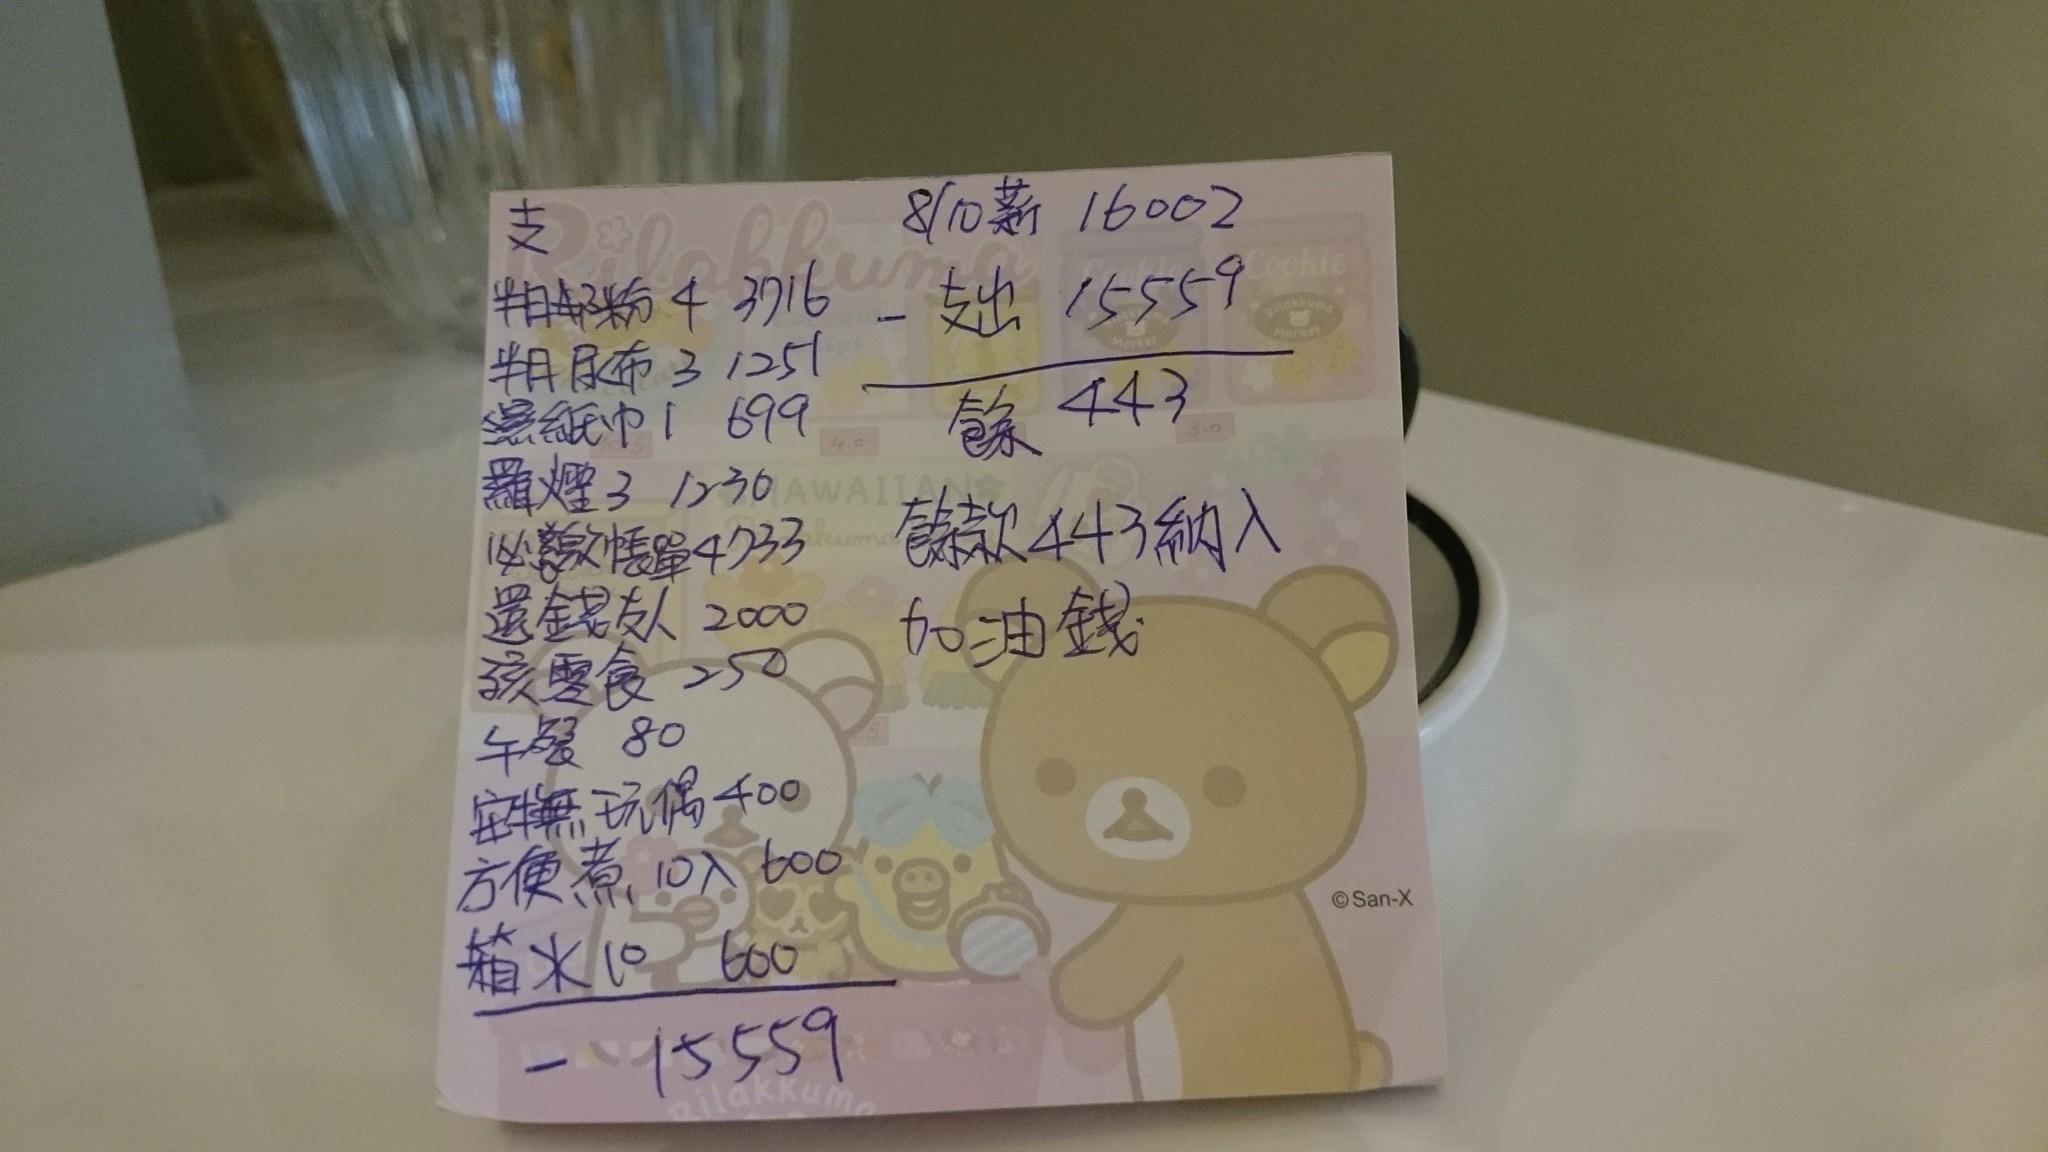 支
半月奶粉 4 3716
半月尿布 3 1251
濕紙巾 1 699
羅煙 3 1230
必繳帳單 4733
還錢友人 2000
孩零食 250
午餐 80
安撫玩偶 400
方便煮 10入 600
箱水 10 600
- 15559
8/10薪 16002
- 支出 15559
餘 443
餘款443納入
加油錢
Rilakkuma
Cookie
Market
Cookie
Market
4.0
3.0
HAWAIIAN
©San-X
Rilakkuma